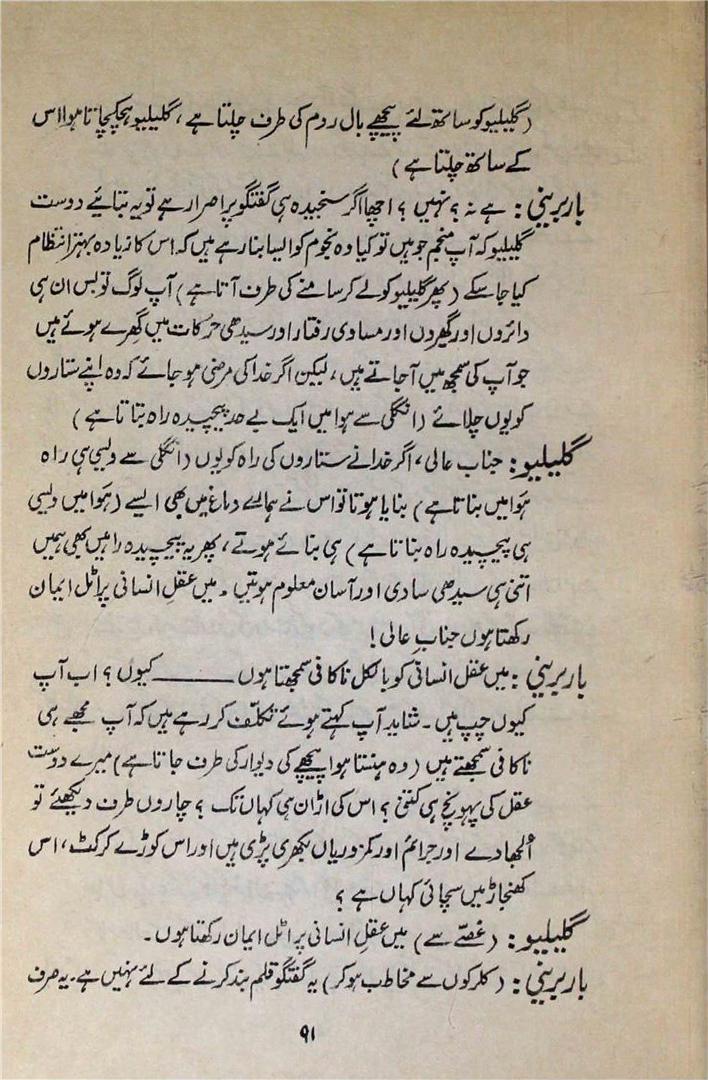 (گلیلیو کو ساتھ لئے پیچھے بال روم کی طرف چلتا ہے، گلیلیو ہچکچاتا ہوا اس
کے ساتھ چلتا ہے)
باربرینی: ہے نہ؟ نہیں؟ اچھا اگر سنجیدہ ہی گفتگو پر اصرار ہے تو یہ بتائیے دوست
گلیلیو کہ آپ منجم جو ہیں تو کیا وہ نجوم کو ایسا بنا رہے ہیں کہ اس کا زیادہ بہتر انتظام
کیا جا سکے (پھر گلیلیو کو لے کر سامنے کی طرف آتا ہے) آپ لوگ تو بس ان ہی
دائروں اور گھیروں اور مساوی رفتار اور سیدھی حرکات میں گھرے ہوئے ہیں
جو آپ کی سمجھ میں آ جاتے ہیں، لیکن اگر خدا کی مرضی ہو جائے کہ وہ اپنے ستاروں
کو یوں چلائے (انگلی سے ہوا میں ایک بے حد پیچیدہ راہ بتاتا ہے)
گلیلیو: جناب عالی، اگر خدا نے ستاروں کی راہ کو یوں (انگلی سے ویسی ہی راہ
ہوا میں بناتا ہے) بنایا ہوتا تو اس نے ہمارے دماغ میں بھی ایسے (ہوا میں ویسی
ہی پیچیدہ راہ بناتا ہے) ہی بنائے ہوتے، پھر یہ پیچیدہ راہیں بھی ہمیں
اتنی ہی سیدھی سادی اور آسان معلوم ہوتیں۔ میں عقلِ انسانی پر اٹل ایمان
رکھتا ہوں جنابِ عالی!
باربرینی: میں عقل انسانی کو بالکل ناکافی سمجھتا ہوں ـــــــــ کیوں؟ اب آپ
کیوں چپ ہیں۔ شاید آپ کہتے ہوئے تکلّف کر رہے ہیں کہ آپ مجھے ہی
ناکافی سمجھتے ہیں (وہ ہنستا ہوا پیچھے کی دیوار کی طرف جاتا ہے) میرے دوست
عقل کی پہونچ ہی کتنی؟ اس کی اڑان ہی کہاں تک؟ چاروں طرف دیکھئے تو
اُلجھاوے اور جرائم اور کمزوریاں بکھری پڑی ہیں اور اس کوڑے کرکٹ، اس
کھنجاڑ میں سچائی کہاں ہے؟
گلیلیو: (غصّے سے) میں عقلِ انسانی پر اٹل ایمان رکھتا ہوں۔
باربرینی: (کلرکوں سے مخاطب ہو کر) یہ گفتگو قلم بند کرنے کے لئے نہیں ہے۔ یہ صرف
۹۱